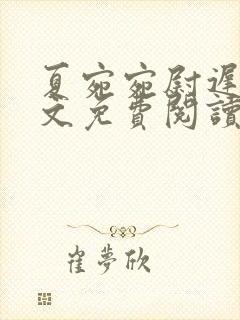 夏宛宛尉遲
文免費閱讀
崔夢欣